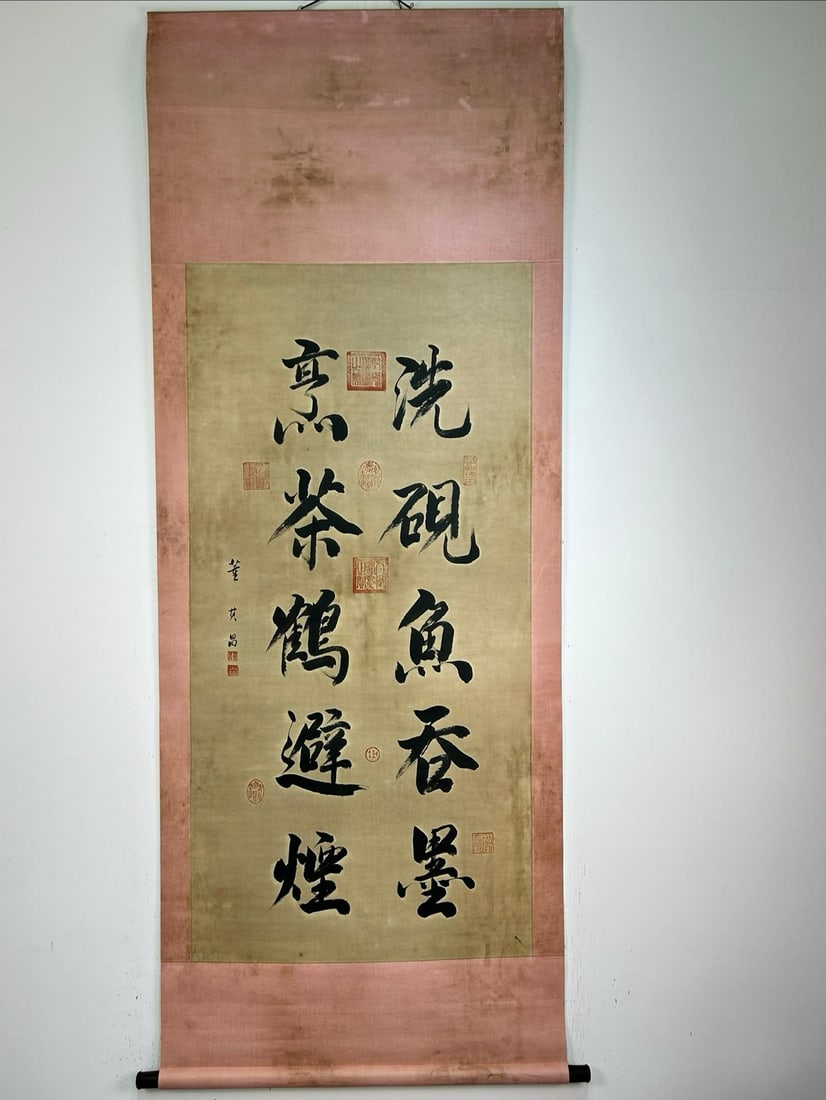 洗硯魚吞墨
烹茶鶴避煙
董其昌